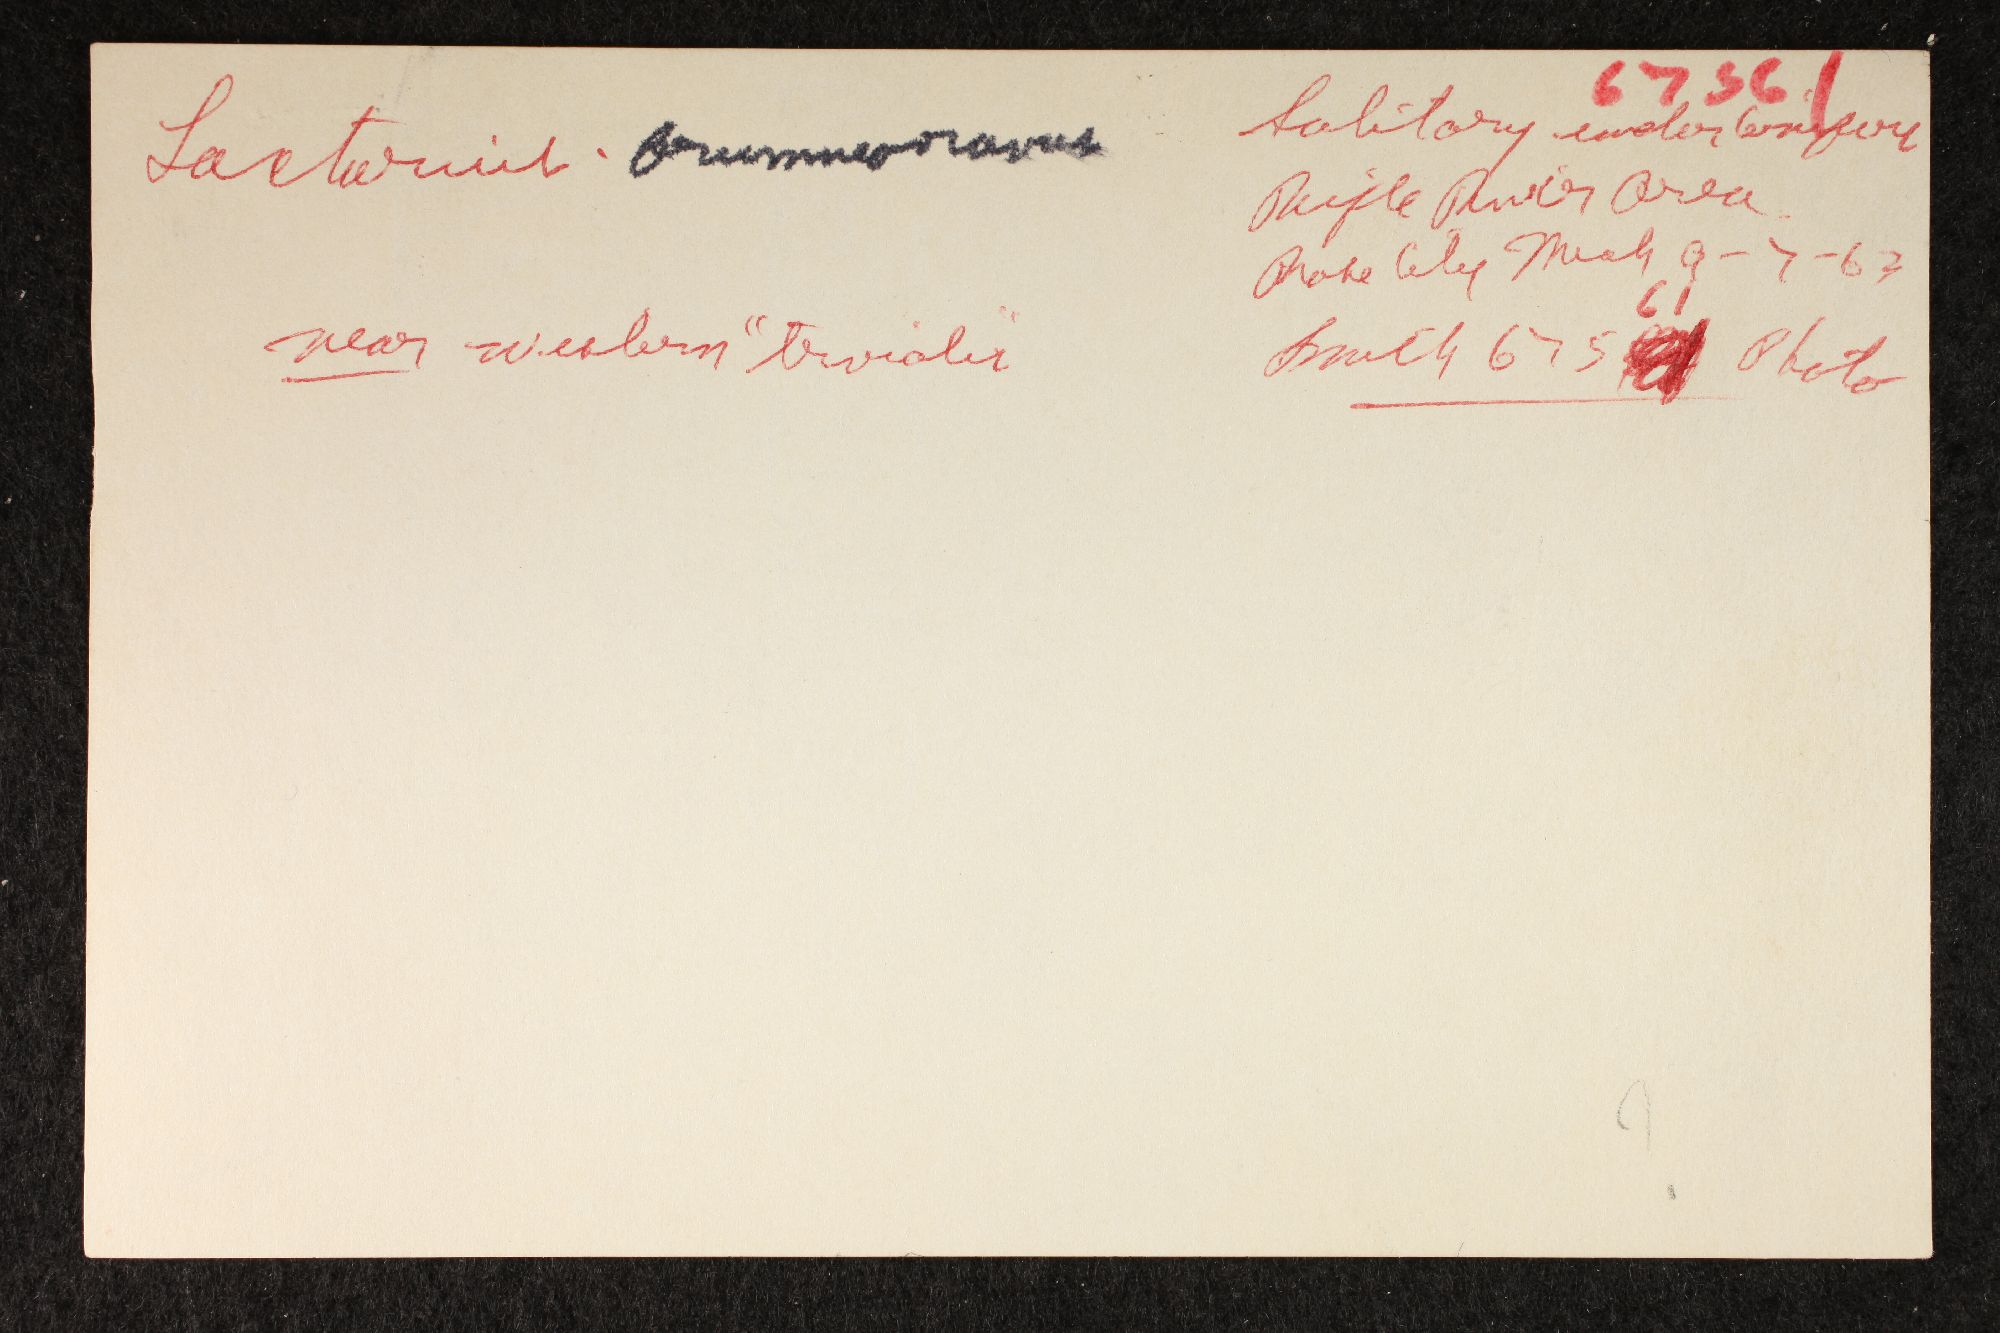 67561
Lactarius. brunneoviolaceus
Solitary under conifers
Rifle River Area
Rose City Mich 9-7-63
near western "trivialis"
61
Smith 675 Photo